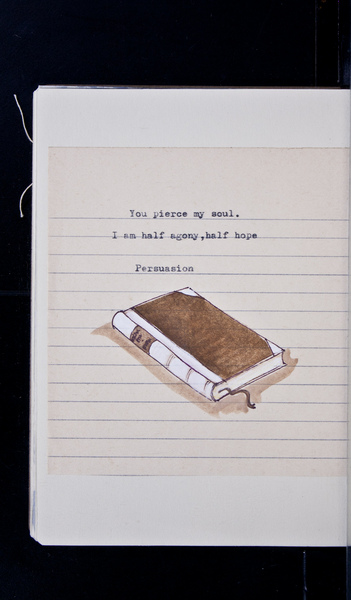 You pierce my soul.
I am half agony,half hope
Persuasion